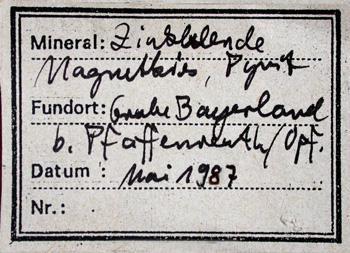 Mineral: Zinkblende
Magnetkies, Pyrit
Fundort: Grube Bayerland
b. Pfaffenreuth/Opf.
Datum: Mai 1987
Nr.: